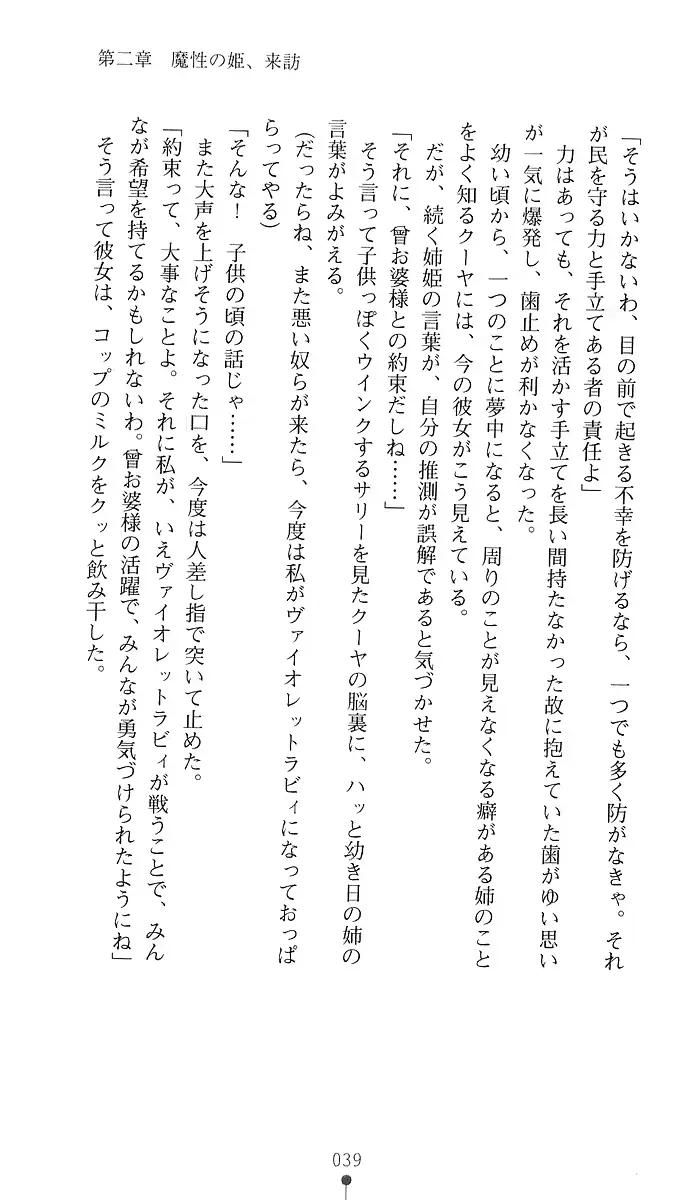 第二章　魔性の姫、来訪
「そうはいかないわ、目の前で起きる不幸を防げるなら、一つでも多く防がなきゃ。それ
が民を守る力と手立てある者の責任よ」
　力はあっても、それを活かす手立てを長い間持たなかった故に抱えていた歯がゆい思い
が一気に爆発し、歯止めが利かなくなった。
　幼い頃から、一つのことに夢中になると、周りのことが見えなくなる癖がある姉のこと
をよく知るクーヤには、今の彼女がこう見えている。
　だが、続く姉姫の言葉が、自分の推測が誤解であると気づかせた。
「それに、曾お婆様との約束だしね……」
　そう言って子供っぽくウインクするサリーを見たクーヤの脳裏に、ハッと幼き日の姉の
言葉がよみがえる。
（だったらね、また悪い奴らが来たら、今度は私がヴァイオレットラビィになっておっぱ
らってやる）
「そんな！　子供の頃の話じゃ……」
　また大声を上げそうになった口を、今度は人差し指で突いて止めた。
「約束って、大事なことよ。それに私が、いえヴァイオレットラビィが戦うことで、みん
なが希望を持てるかもしれないわ。曾お婆様の活躍で、みんなが勇気づけられたようにね」
　そう言って彼女は、コップのミルクをクッと飲み干した。
039